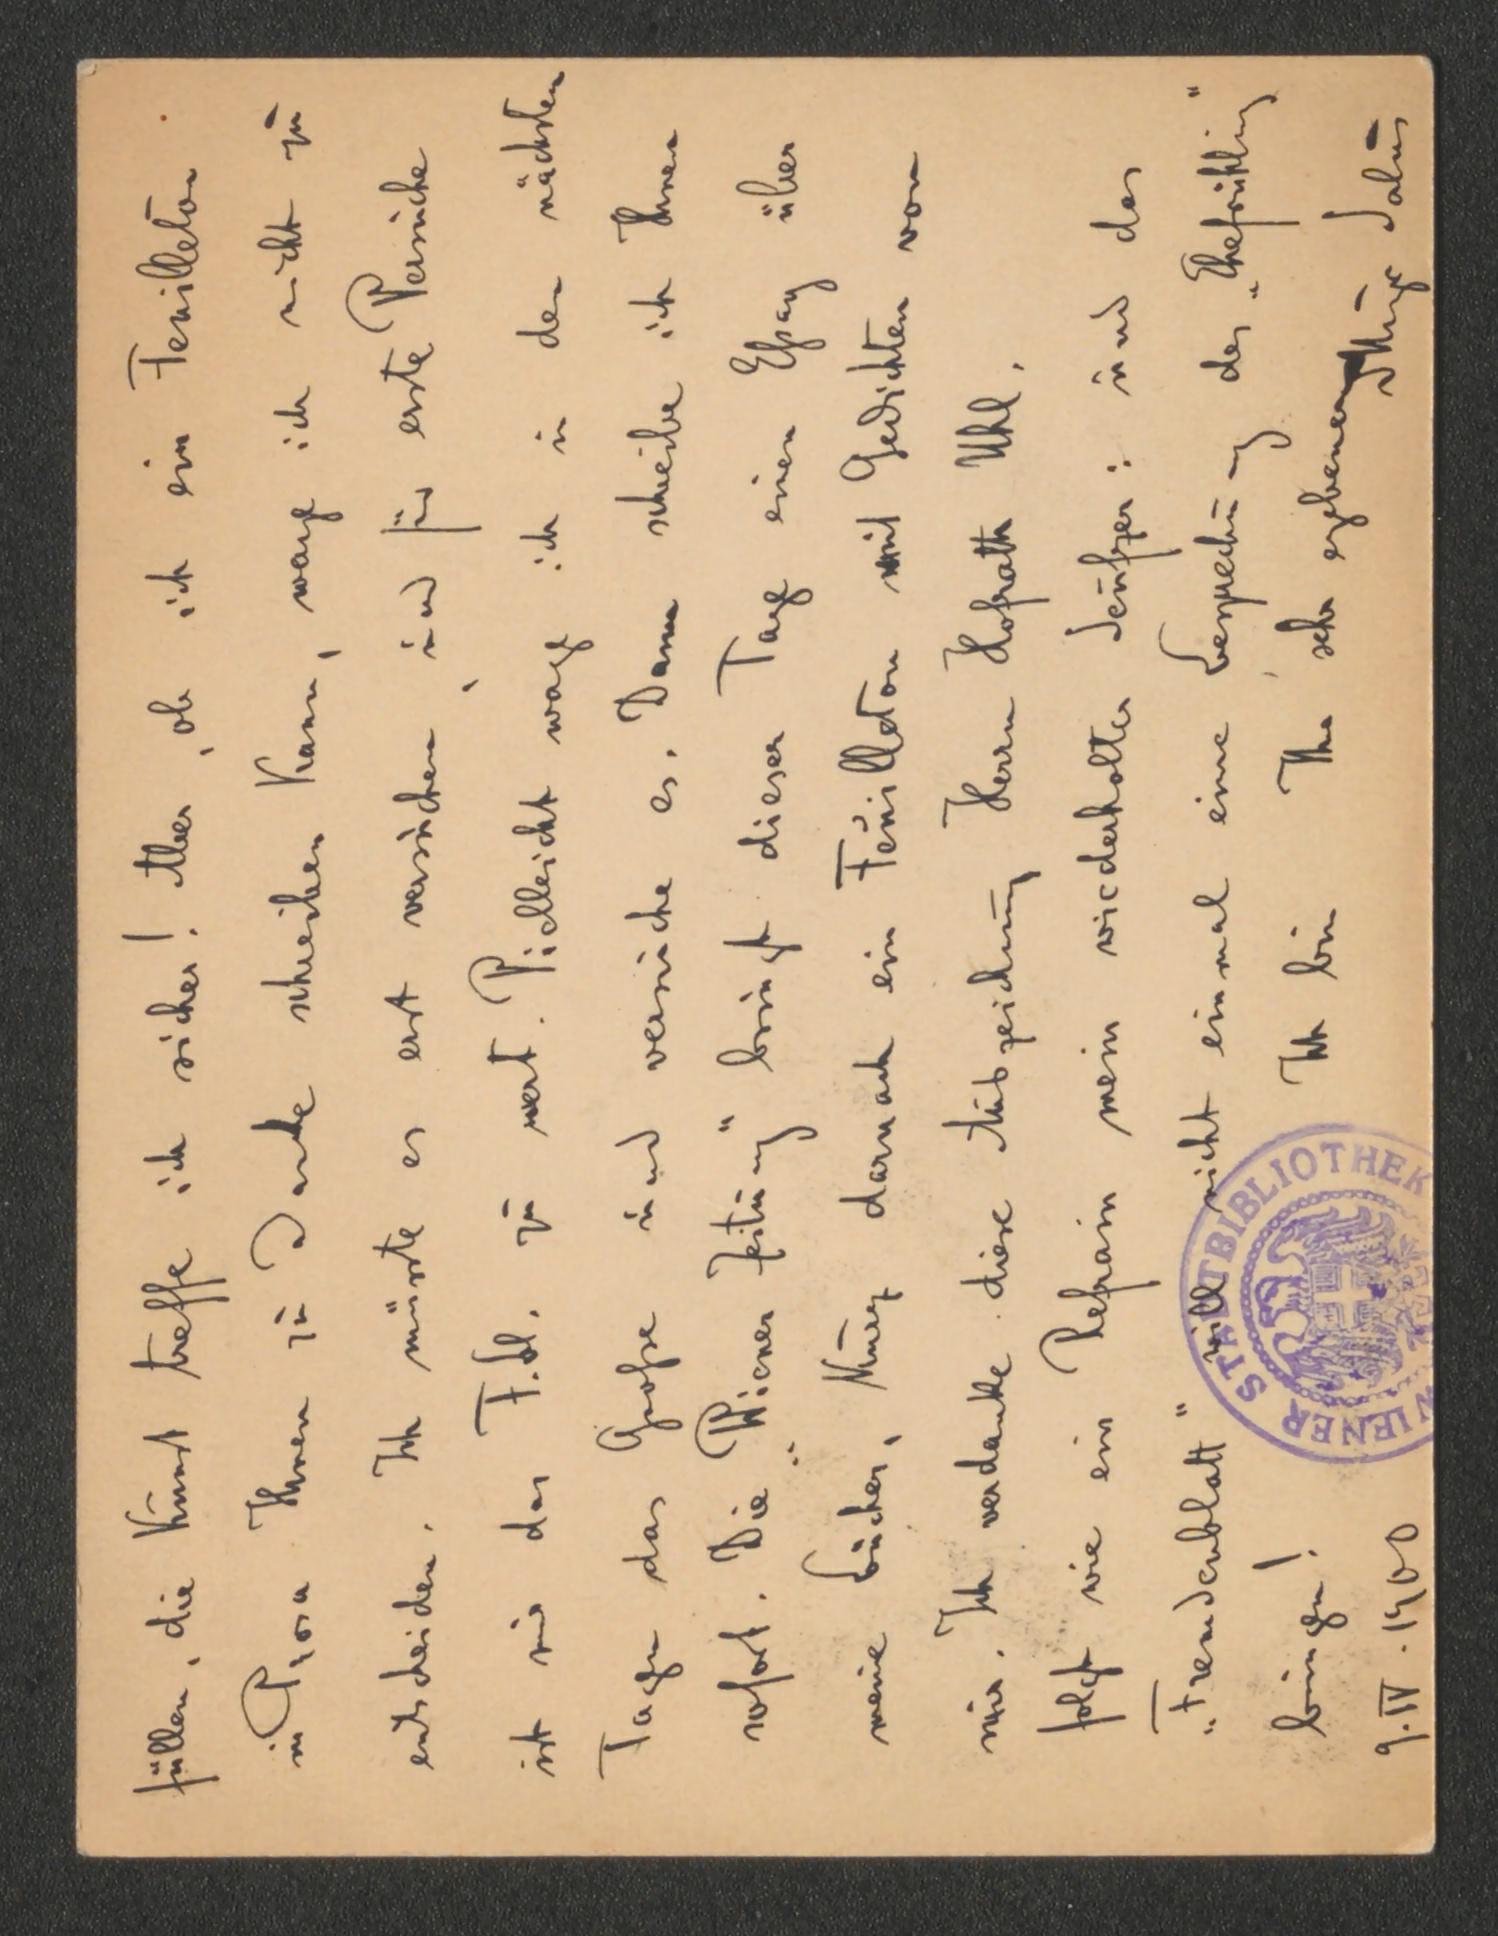 füllen, die Kunst treffe ich sicher! Aber, ob ich ein Feuilleton
in Prosa Ihnen zu Danke schreiben kann, wage ich nicht zu
entscheiden. Ich müsste es erst versuchen, und für erste Versuche
ist mir das F.bl. zu wert. Vielleicht wage ich in den nächsten
Tagen das Große und versuche es. Dann schreibe ich Ihnen
sofort. Die „Wiener Zeitung" bringt dieser Tage einen Eßay über
meine Bücher, kurz darnach ein Feuilleton mit Gedichten von
mir. Ich verdanke diese Auszeichnung Herrn Hofrath Uhl.
folgt wie ein Refrain mein wiederholter Seufzer: und das
„Fremdenblatt" will nicht einmal eine Besprechung des „Ehefrühling"
bringen! Ich bin Ihr sehr ergebener
9.IV.1900 Hugo Salus
WIENER STADTBIBLIOTHEK